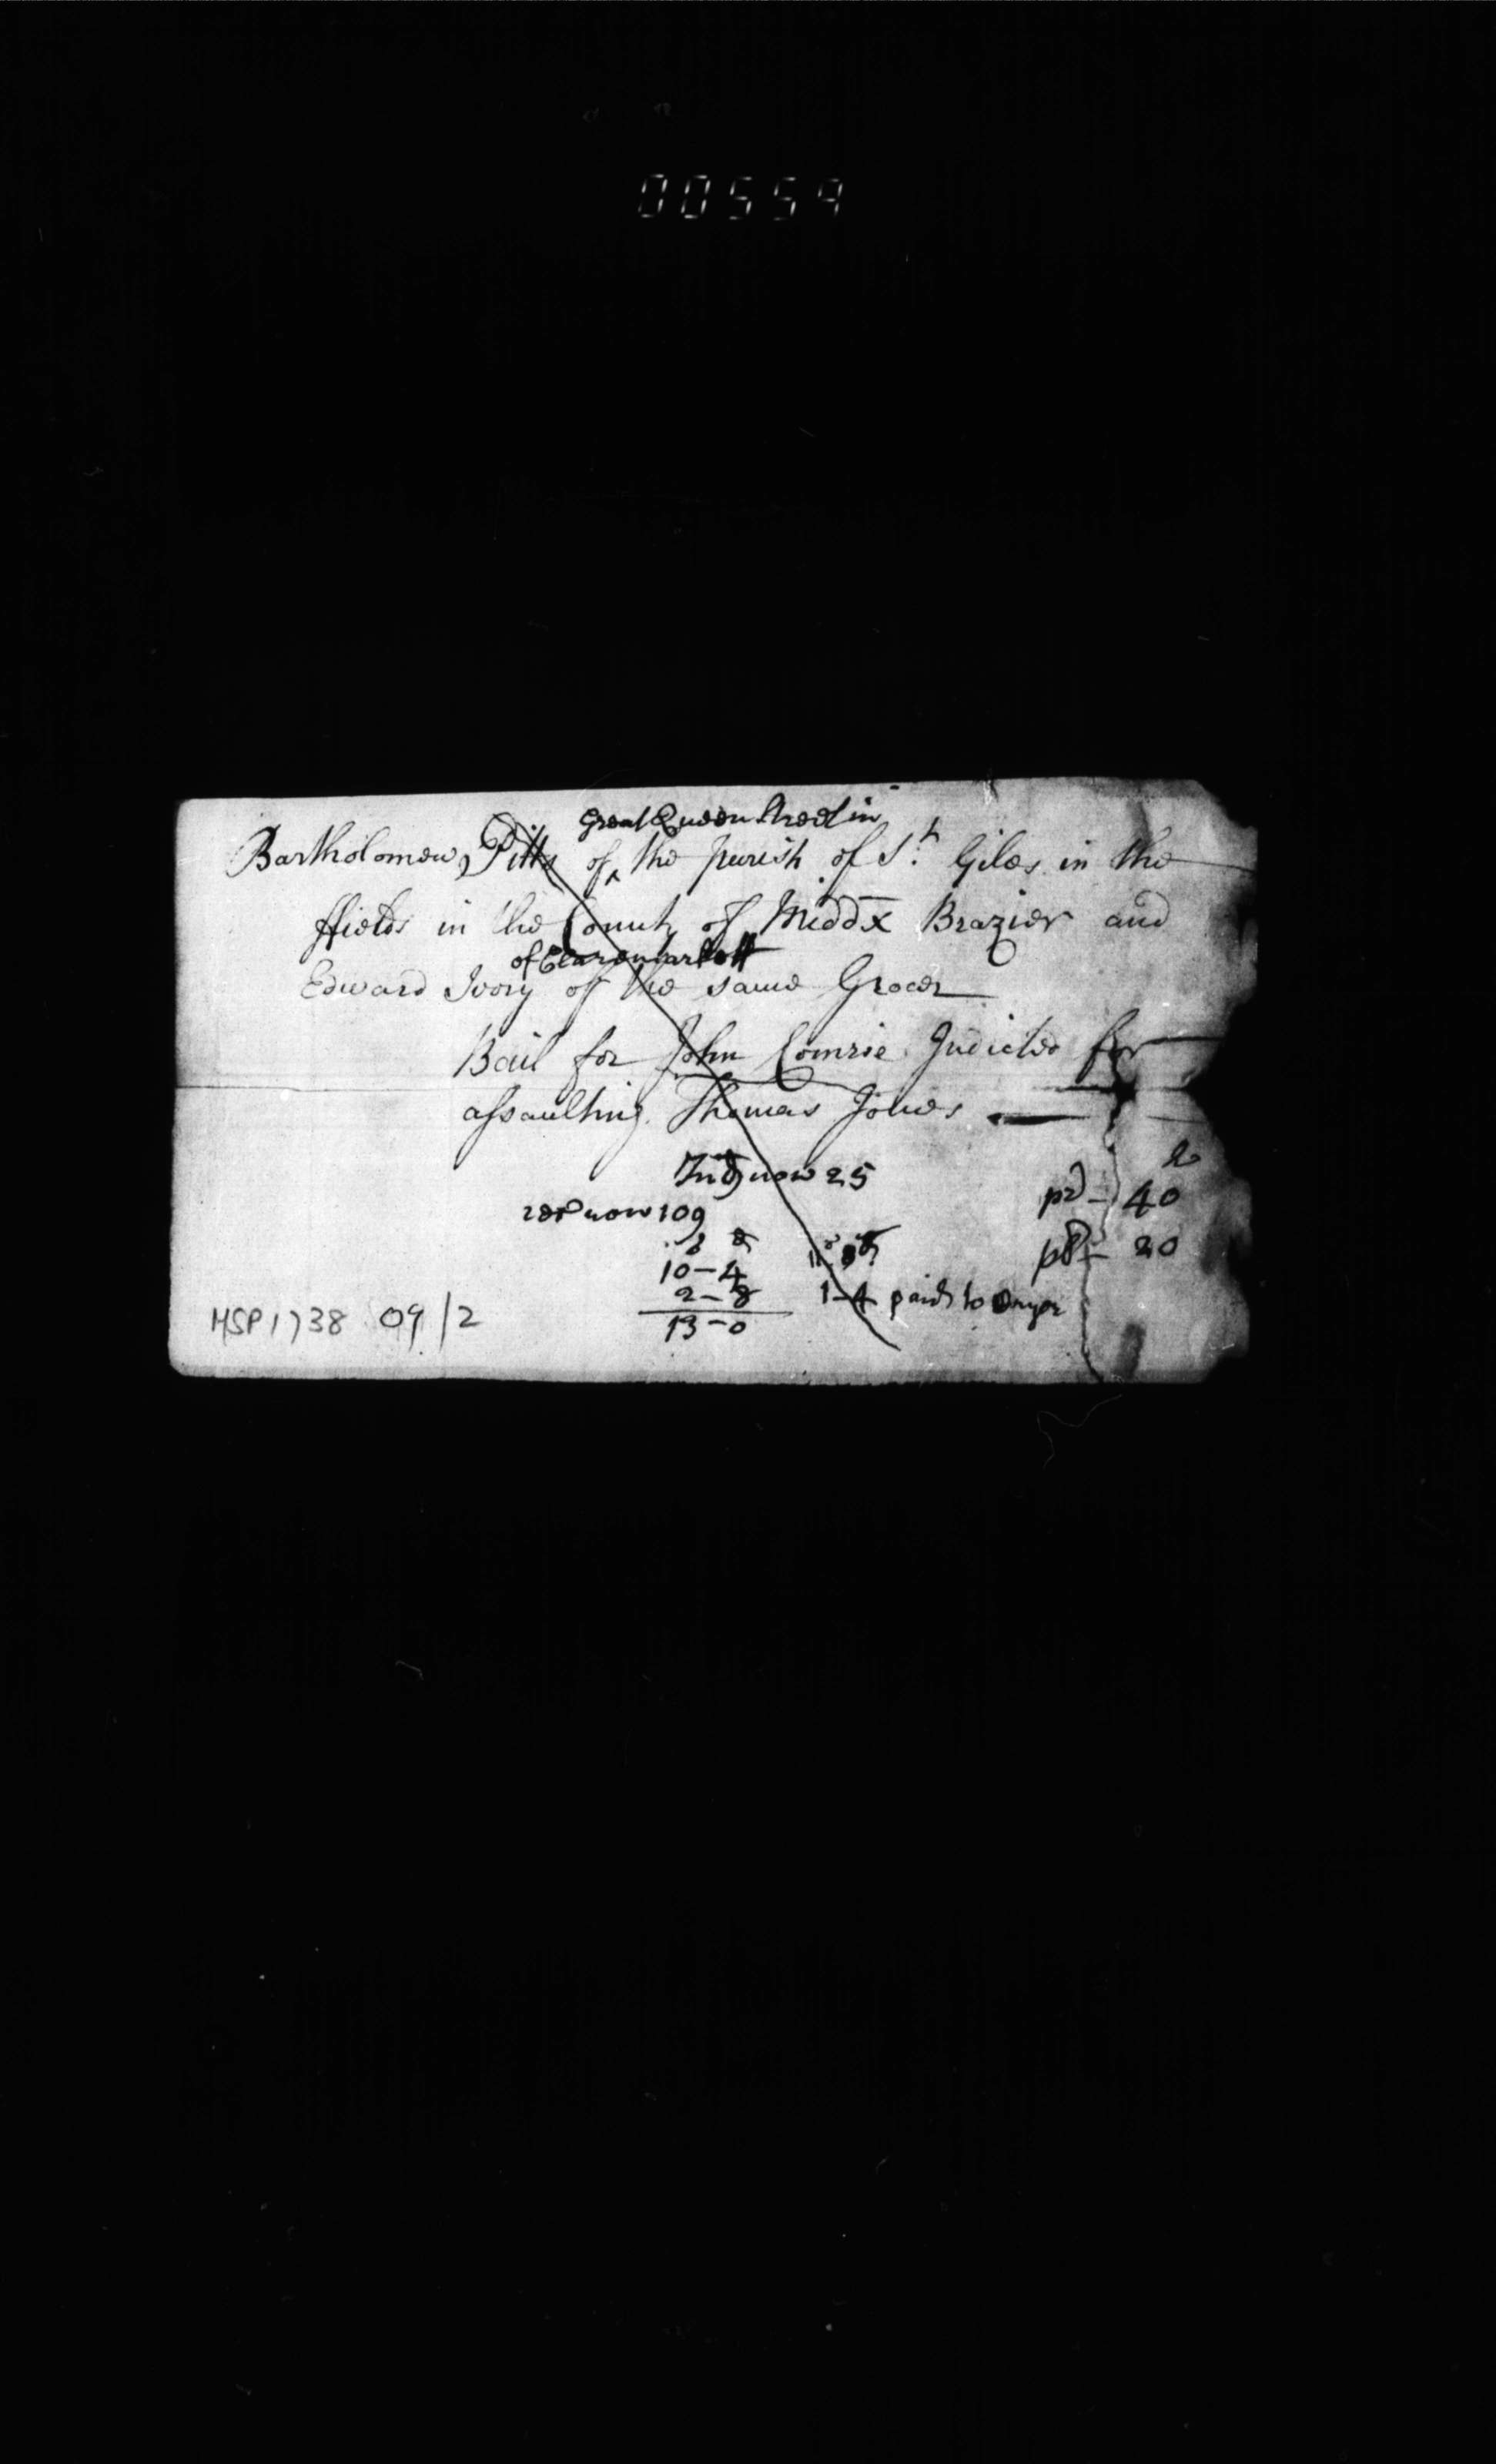 00559
Great Queen Street in
Bartholomew Pitts of ^ the parish of St. Giles in the
ffields in the County of Middx Brazier and
of Claremarkett
Edward Ivory of the same Grocer
Bail for John Comrie Indicted for
assaulting Thomas Jones
Ind now 25
rec now 109
s d
10-4
2-8
13-0
1-4 paid to
pd - 40
p - 20
MSP 1738 09/2